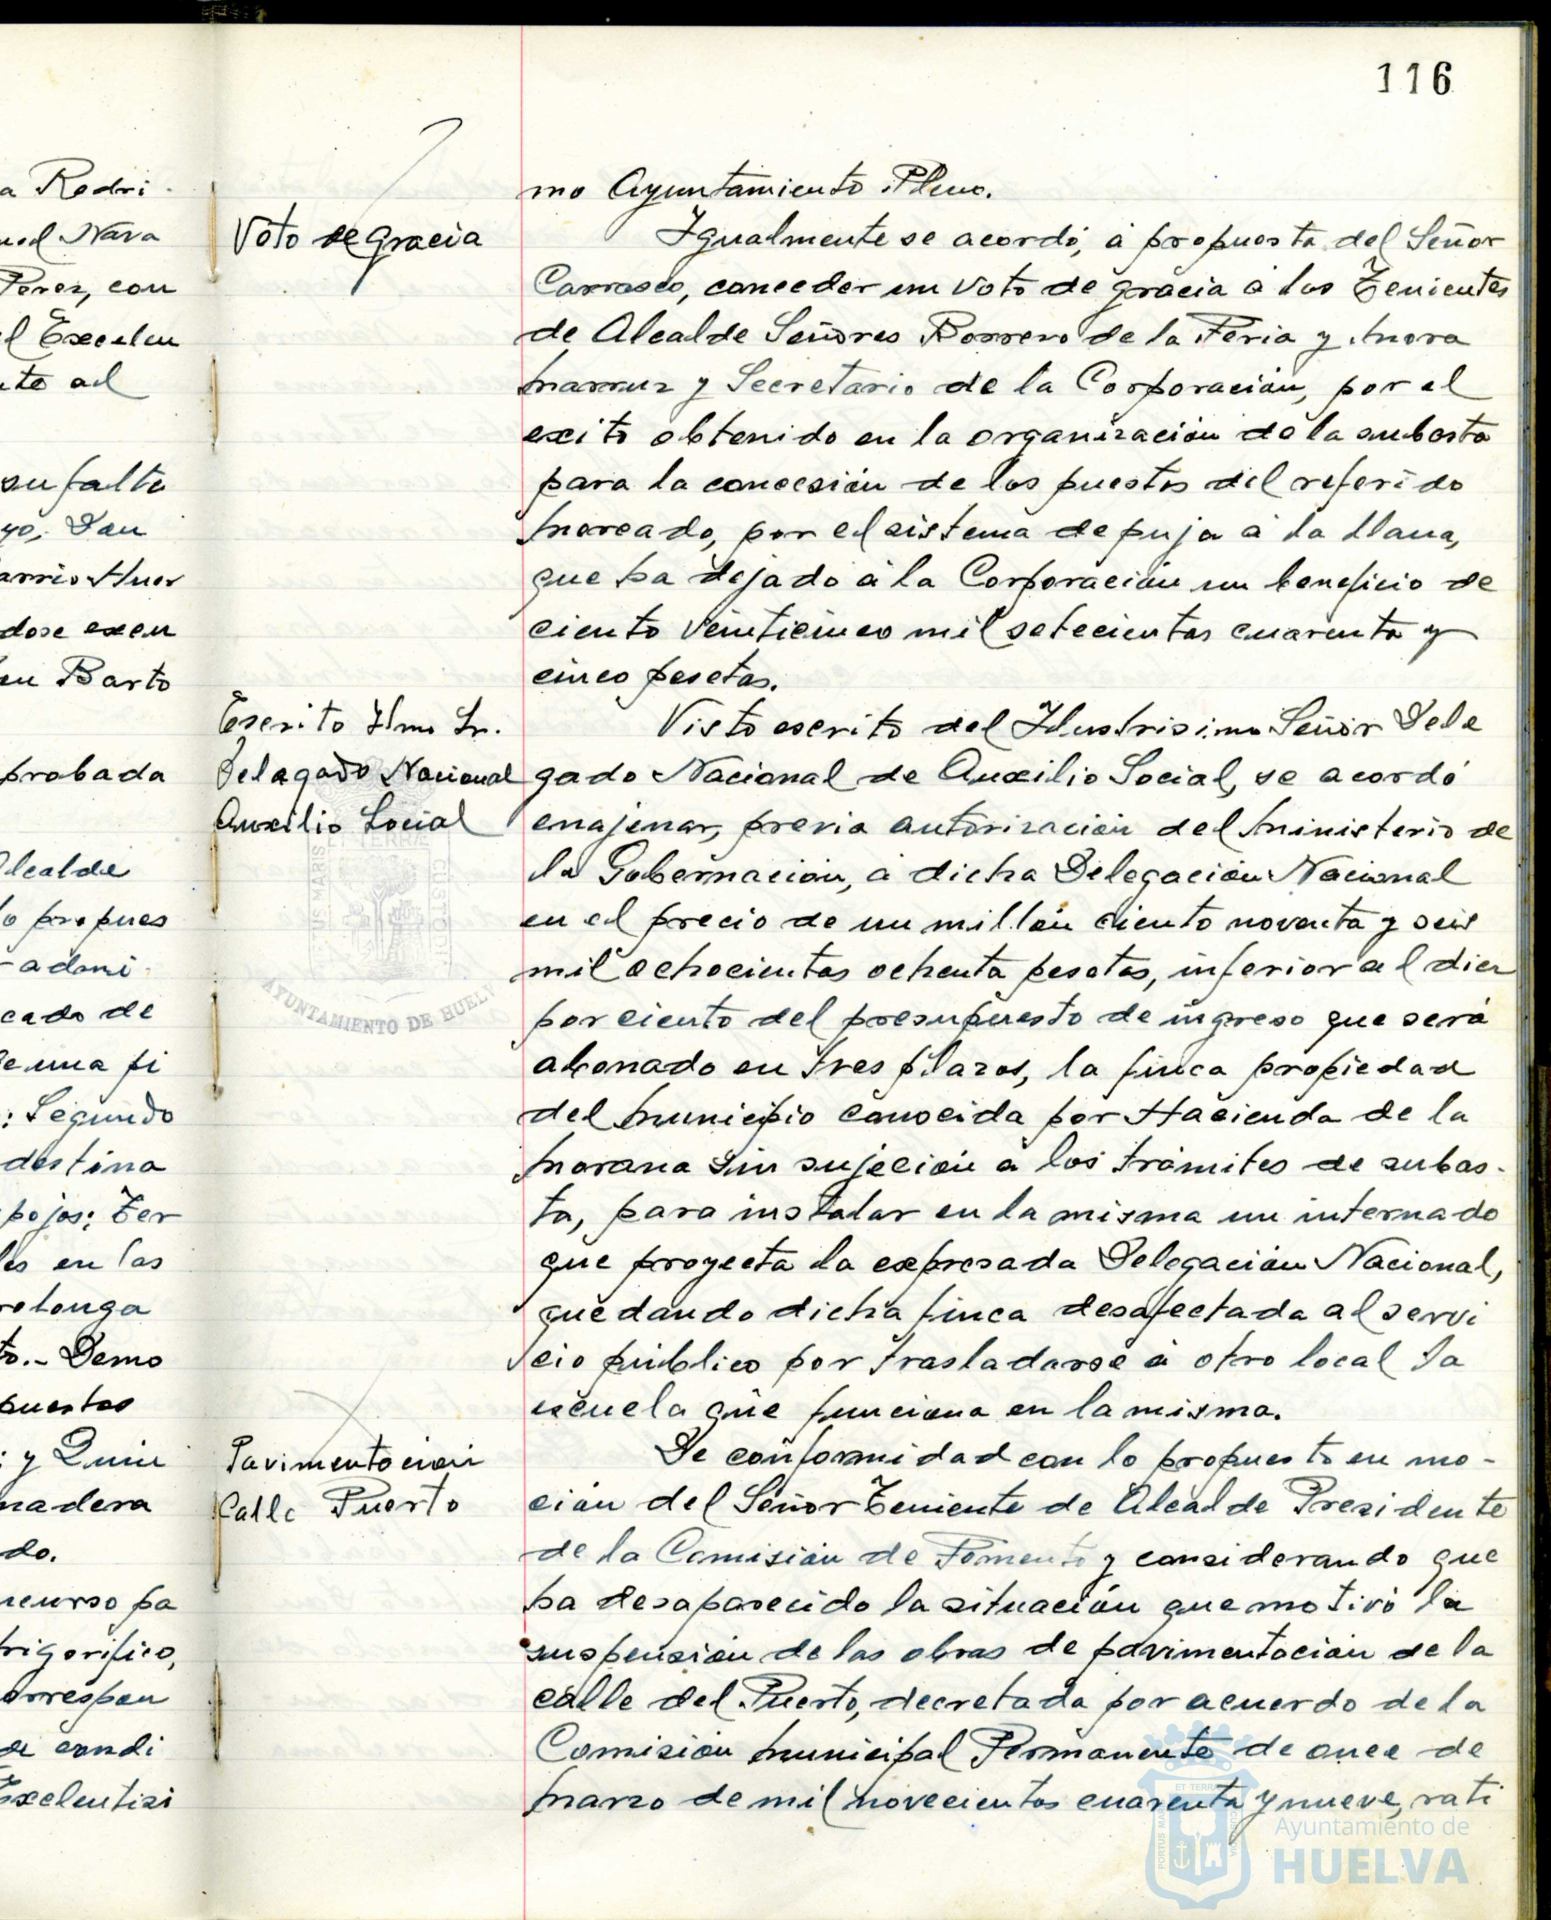 116
a Rodri
uel Nava
Perez, con
el Excelen
nte al
su falta
yo, Don
arrio Huer
dose exen
en Barto
probada
Alcalde
lo propues
adoni
cado de
de una fi
: Segundo
destina
pojos: Ter
les en las
rolonga
to.- Demo
puestos
; y Quin
madera
do.
ncurso pa
frigorifico,
orrespon
de condi
Excelentisi
Voto de gracia
Escrito Ilmo Sr.
Delagado Nacional
Auxilio Social
Pavimentación
Calle Puerto
mo Ayuntamiento Pleno.
Igualmente se acordó, á propuesta del Señor
Carrasco, conceder un voto de gracia á los Tenientes
de Alcalde Señores Borrero de la Feria y Mora
Narruz y Secretario de la Corporación, por el
exito obtenido en la organización de la subasta
para la concesión de los puestos del referido
Mercado, por el sistema de puja á la llana,
que ha dejado á la Corporación un beneficio de
ciento veinticinco mil setecientas cuarenta y
cinco pesetas.
Visto escrito del Ilustrisimo Señor Dele
gado Nacional de Auxilio Social, se acordó
enajenar, previa autorización del Ministerio de
la Gobernación, á dicha Delegación Nacional
en el precio de un millón ciento noventa y seis
mil ochocientas ochenta pesetas, inferior al diez
por ciento del presupuesto de ingreso que será
abonado en tres plazos, la finca propiedad
del Municipio conocida por Hacienda de la
Morana sin sujeción á los trámites de subas-
ta, para instalar en la misma un internado
que proyecta la expresada Delegación Nacional,
quedando dicha finca desafectada al servi
cio público por trasladarse á otro local la
escuela que funciona en la misma.
De conformidad con lo propuesto en mo-
ción del Señor Teniente de Alcalde Presidente
de la Comisión de Fomento y considerando que
ha desaparecido la situación que motivó la
suspensión de las obras de pavimentación de la
calle del Puerto, decretada por acuerdo de la
Comisión Municipal Permanente de once de
Marzo de mil novecientos cuarenta y nueve, rati
AYUNTAMIENTO DE HUELV
Ayuntamiento de
HUELVA